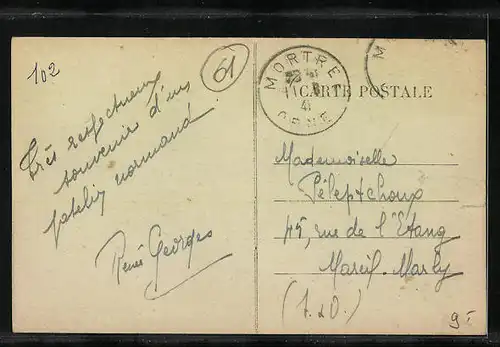 102
61
Très respectueux
souvenir d'un
patelin normand
René Georges
MORTREE
41
ORNE
M
CARTE POSTALE
Mademoiselle
Péleptchouk
45, rue de l'Etang
Mareil-Marly
(S.&O.)
9-